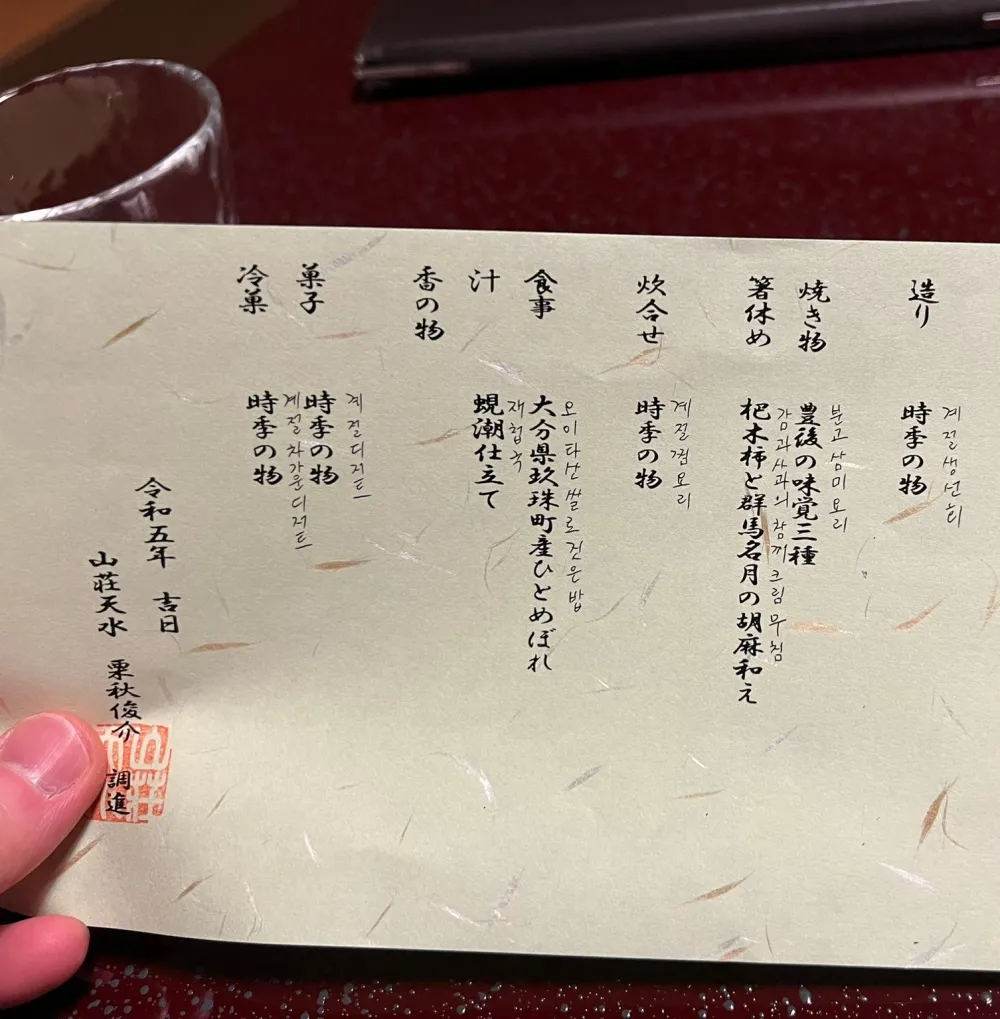 造り
계절생선회
時季の物
焼き物
분고 삼미 요리
豊後の味覚三種
箸休め
감과사과의 참깨크림 무침
杷木柿と群馬名月の胡麻和え
炊合せ
계절찜요리
時季の物
食事
오이타산쌀로 지은 밥
大分県玖珠町産ひとめぼれ
汁
재첩국
蜆潮仕立て
香の物
菓子
계절디저트
時季の物
冷菓
계절 차가운디저트
時季の物
令和五年 吉日
山荘天水 栗秋俊介 調進